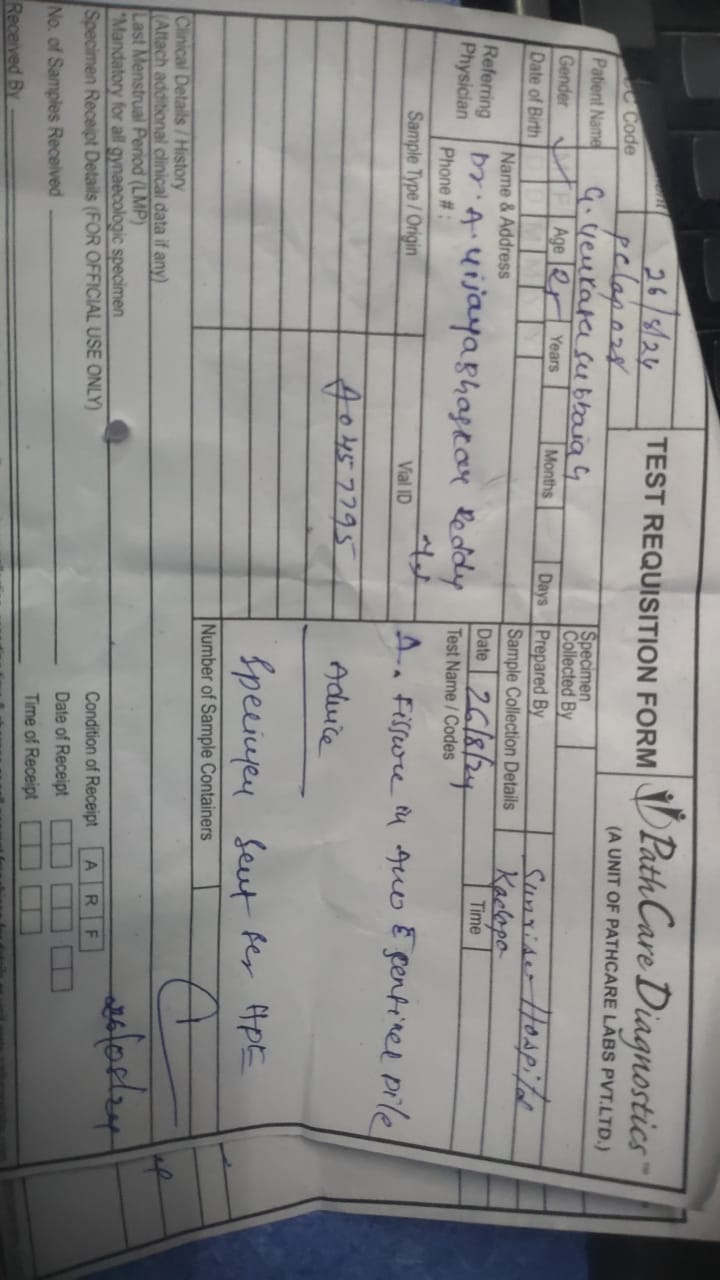 26/8/24
TEST REQUISITION FORM
PathCare Diagnostics™
(A UNIT OF PATHCARE LABS PVT.LTD.)
Code
Patient Name G. Venkata subbaiah
Specimen Collected By
Gender M F Age Years Months Days
Prepared By
Sunrise Hospital
Date of Birth D D M M Y Y
Sample Collection Details Kadapa
Referring Physician
Name & Address
Dr. A. Vijayabhaskar Reddy
Phone # : MS
Date 26/8/24 Time
Sample Type / Origin Vial ID Test Name / Codes
Δ. Fissure in Ano c̄ sentinel pile
A0457795
Advice
Specimen sent for HPE
Number of Sample Containers
Clinical Details / History
(Attach additional clinical data if any)
Last Menstrual Period (LMP)
*Mandatory for all gynaecologic specimen
26/08/24
Specimen Receipt Details (FOR OFFICIAL USE ONLY)
Condition of Receipt A R F
No. of Samples Received
Date of Receipt
Received By
Time of Receipt